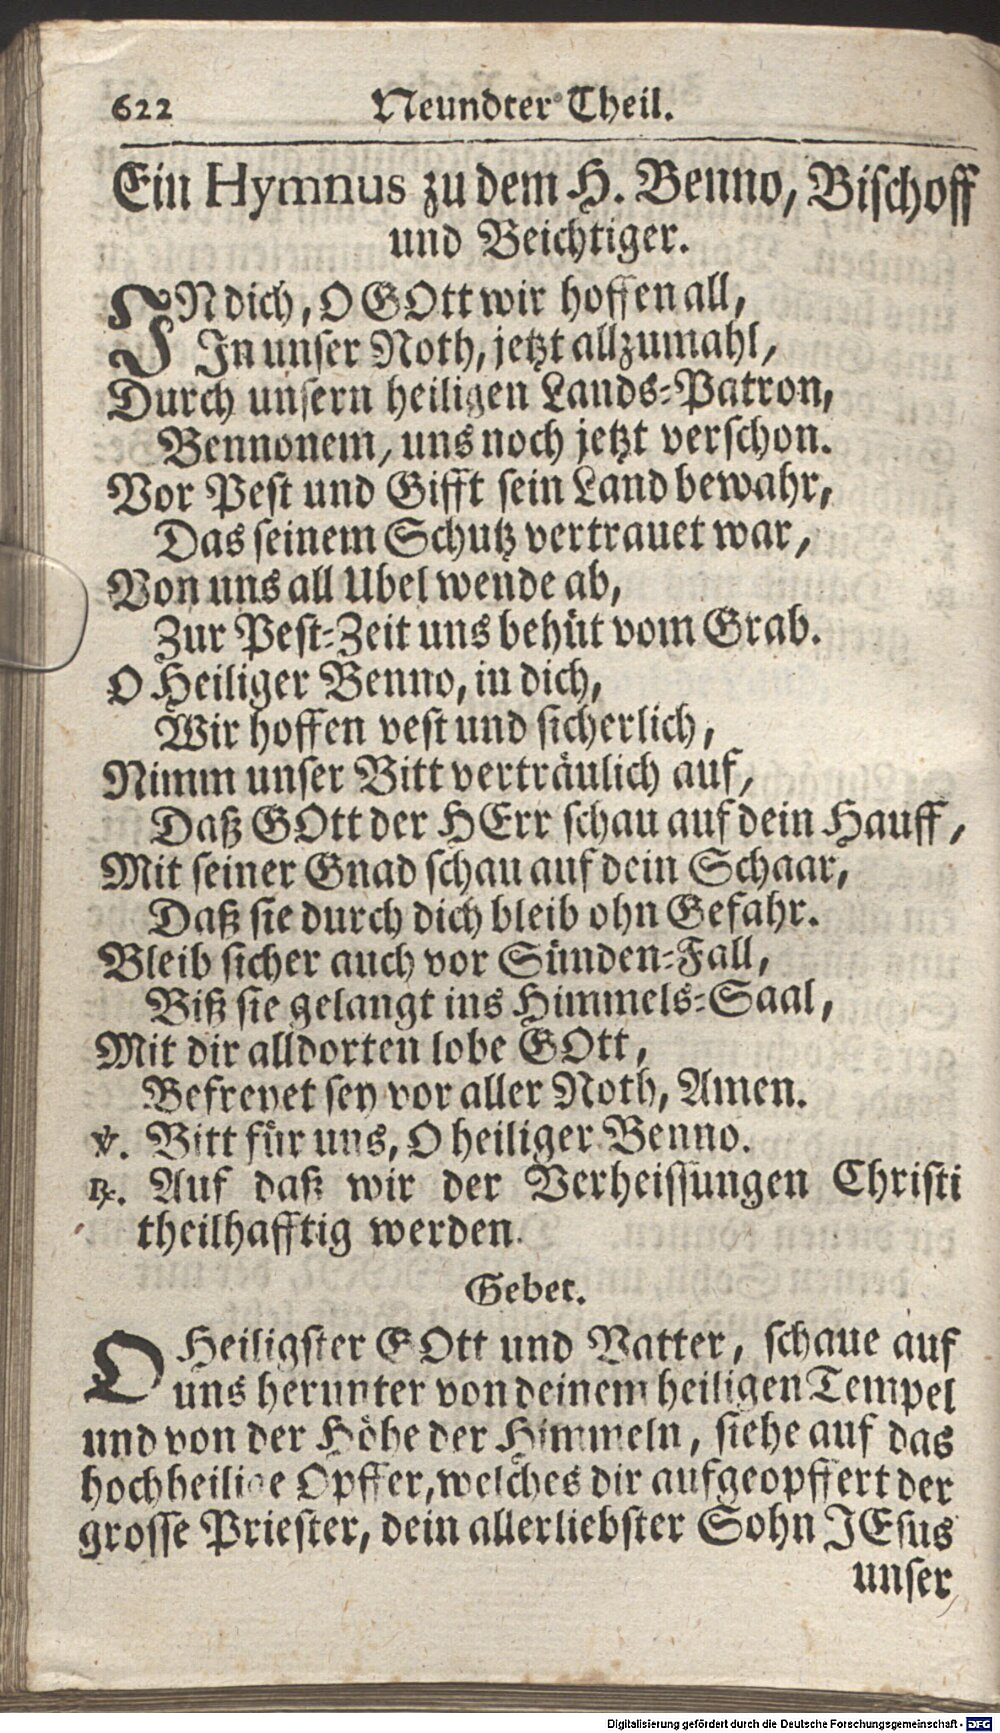 622 Neundter Theil.
Ein Hymnus zu dem H. Benno, Bischoff
und Beichtiger.
IN dich, O GOtt wir hoffen all,
In unser Noth, jetzt allzumahl,
Durch unsern heiligen Lands-Patron,
Bennonem, uns noch jetzt verschon.
Vor Pest und Gifft sein Land bewahr,
Das seinem Schutz vertrauet war,
Von uns all Ubel wende ab,
Zur Pest-Zeit uns behüt vom Grab.
O Heiliger Benno, in dich,
Wir hoffen vest und sicherlich,
Nimm unser Bitt verträulich auf,
Daß GOtt der HErr schau auf dein Hauff,
Mit seiner Gnad schau auf dein Schaar,
Daß sie durch dich bleib ohn Gefahr.
Bleib sicher auch vor Sünden-Fall,
Biß sie gelangt ins Himmels-Saal,
Mit dir alldorten lobe GOtt,
Befreyet sey vor aller Noth, Amen.
℣. Bitt für uns, O heiliger Benno.
℟. Auf daß wir der Verheissungen Christi
theilhafftig werden.
Gebet.
O Heiligster GOtt und Vatter, schaue auf
uns herunter von deinem heiligen Tempel
und von der Höhe der Himmeln, siehe auf das
hochheilige Opffer, welches dir aufgeopffert der
grosse Priester, dein allerliebster Sohn JEsus
unser
Digitalisierung gefördert durch die Deutsche Forschungsgemeinschaft - DFG